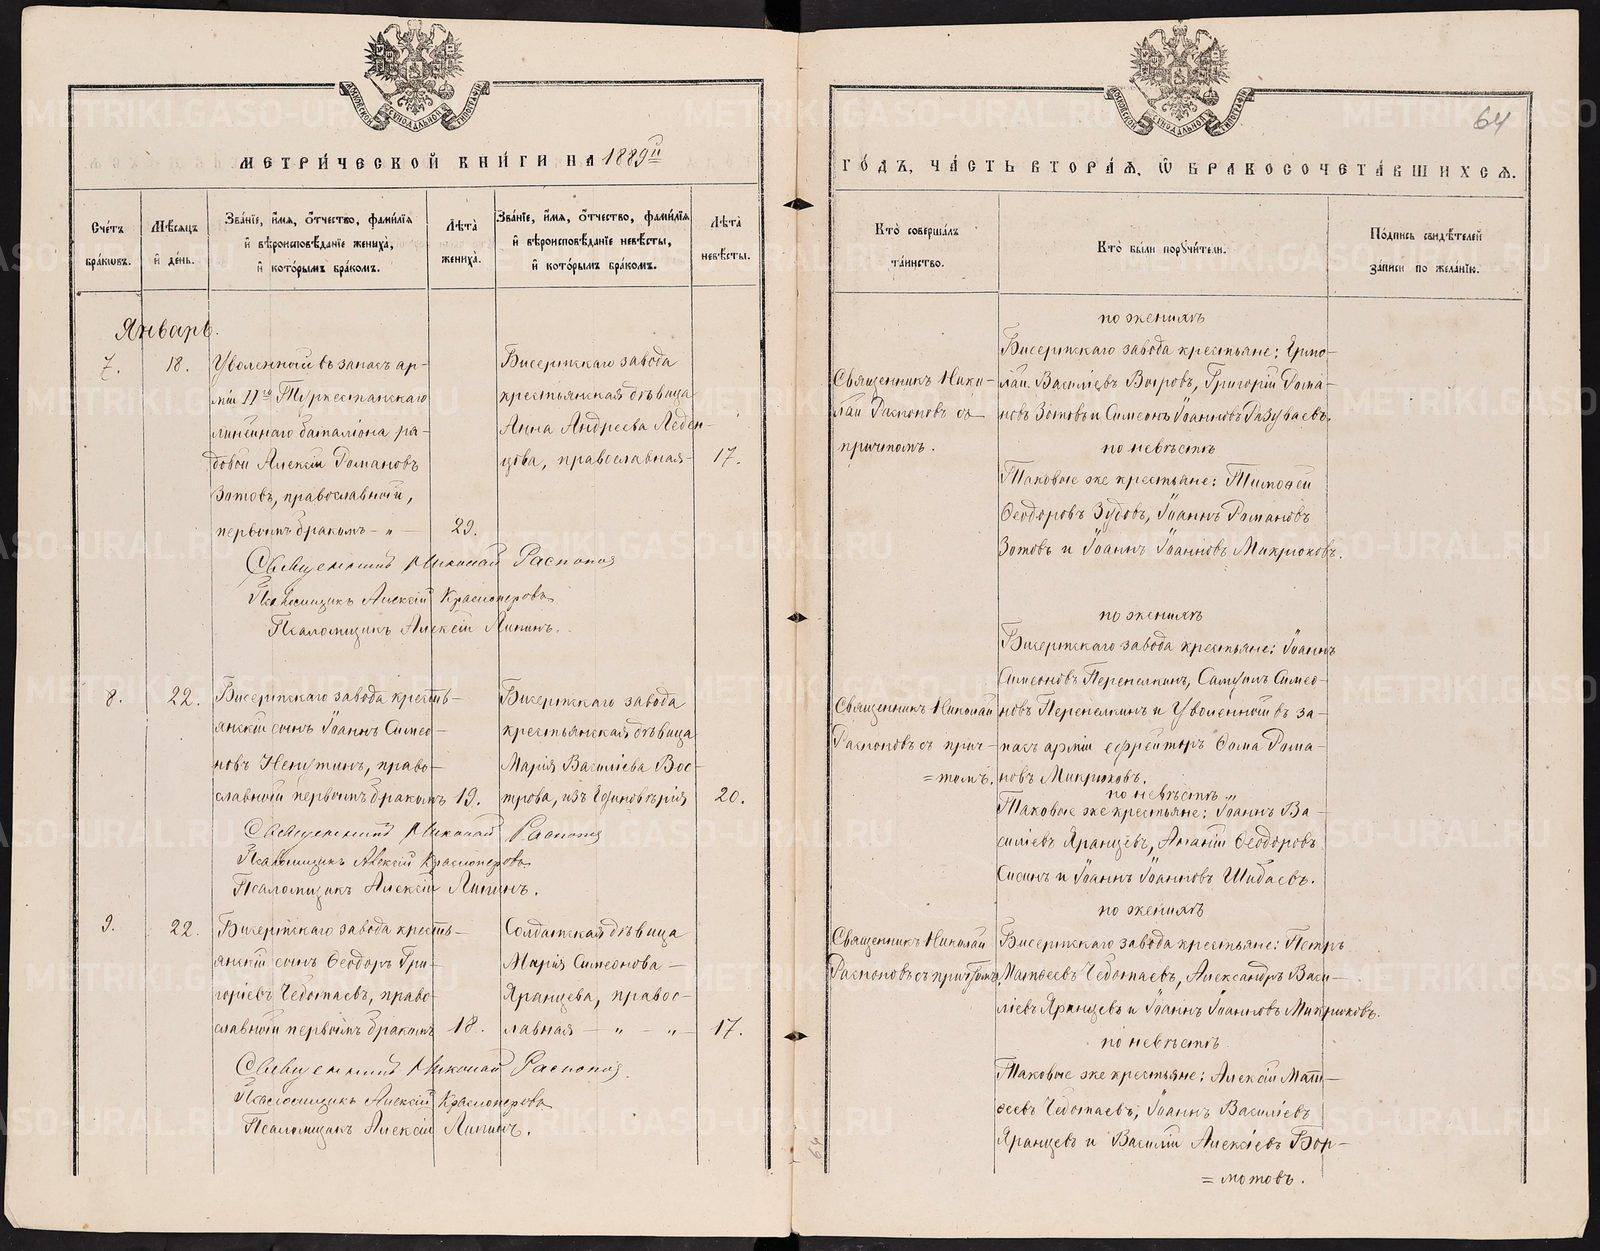 МЕТРИ́ЧЕСКОЙ КНИ́ГИ НА 1889й
Сче́тъ бра́ковъ.
Мѣ́сяцъ и҆ день.
Зва́нїе, и҆́мя, ѻ҆́тчество, фами́лїя и҆ вѣроисповѣ́данїе жениха̀, и҆ кото́рымъ бра́комъ.
Лѣта̀ жениха̀.
Зва́нїе, и҆́мя, ѻ҆́тчество, фами́лїя и҆ вѣроисповѣ́данїе невѣ́сты, и҆ кото́рымъ бра́комъ.
Лѣта̀ невѣ́сты.
Январь.
7.
18.
Уволенный въ запасъ ар-
міи 11го Туркестанскаго
линейнаго баталіона ря-
довой Алексѣй Романовъ
Зотовъ, православный,
первымъ бракомъ - „ -
29.
Бисертскаго завода
крестьянская дѣвица
Анна Андреева Леден-
цова, православная-
17.
Священникъ Николай Распоповъ
Псаломщикъ Алексій Красноперовъ
Псаломщикъ Алексій Липинъ.
8.
22.
Бисертскаго завода кресть-
янскій сынъ Іоаннъ Симео-
новъ Непутинъ, право-
славный первымъ бракомъ
19.
Бисертскаго завода
крестьянская дѣвица
Марія Васильева Вос-
трова, изъ Единовѣрія
20.
Священникъ Николай Распоповъ
Псаломщикъ Алексій Красноперовъ
Псаломщикъ Алексій Липинъ.
9.
22.
Бисертскаго завода кресть-
янскій сынъ Ѳеодоръ Гри-
горіевъ Чеботаевъ, право-
славный первымъ бракомъ
18.
Солдатская дѣвица
Марія Симеонова -
Яранцева, правос-
лавная - „ - „ -
17.
Священникъ Николай Распоповъ
Псаломщикъ Алексій Красноперовъ
Псаломщикъ Алексій Липинъ.
64
ГО́ДЪ, ЧА́СТЬ ВТОРА́Я, Ѡ҆ БРАКОСОЧЕТА́ВШИХСЯ.
Кто̀ соверша́лъ та́инство.
Кто̀ бы́ли порꙋчи́тели.
По́дпись свидѣ́телей за́писи по жела́нїю.
Священникъ Нико-
лай Распоповъ съ
причтомъ.
по женихѣ
Бисертскаго завода крестьяне: Ермо-
лай Васильевъ Востровъ, Григорій Рома-
новъ Зотовъ и Симеонъ Іоанновъ Разуваевъ.
по невѣстѣ
Таковые же крестьяне: Тимоѳей
Ѳеодоровъ Зудовъ, Іоаннъ Романовъ
Зотовъ и Іоаннъ Іоанновъ Микрюковъ.
Священникъ Николай
Распоповъ съ прич-
=томъ.
по женихѣ
Бисертскаго завода крестьяне: Іоаннъ
Симеоновъ Перепелкинъ, Самуилъ Симео-
новъ Перепелкинъ и Уволенный въ за-
пасъ арміи ефрейторъ Ѳома Рома-
новъ Микрюковъ.
по невѣстѣ „
Таковые же крестьяне: Іоаннъ Ва-
сильевъ Яранцевъ, Ананій Ѳеодоровъ
Сысинъ и Іоаннъ Іоанновъ Шибаевъ.
Священникъ Николай
Распоповъ съ причтомъ.
по женихѣ
Бисертскаго завода крестьяне: Петръ
Матѳеевъ Чеботаевъ, Александръ Васи-
ліевъ Яранцевъ и Іоаннъ Іоанновъ Микрюковъ.
по невѣстѣ
Таковые же крестьяне: Алексій Мат-
ѳеевъ Чеботаевъ, Іоаннъ Васильевъ
Яранцевъ и Василій Алексіевъ Бор-
=мотовъ.
64